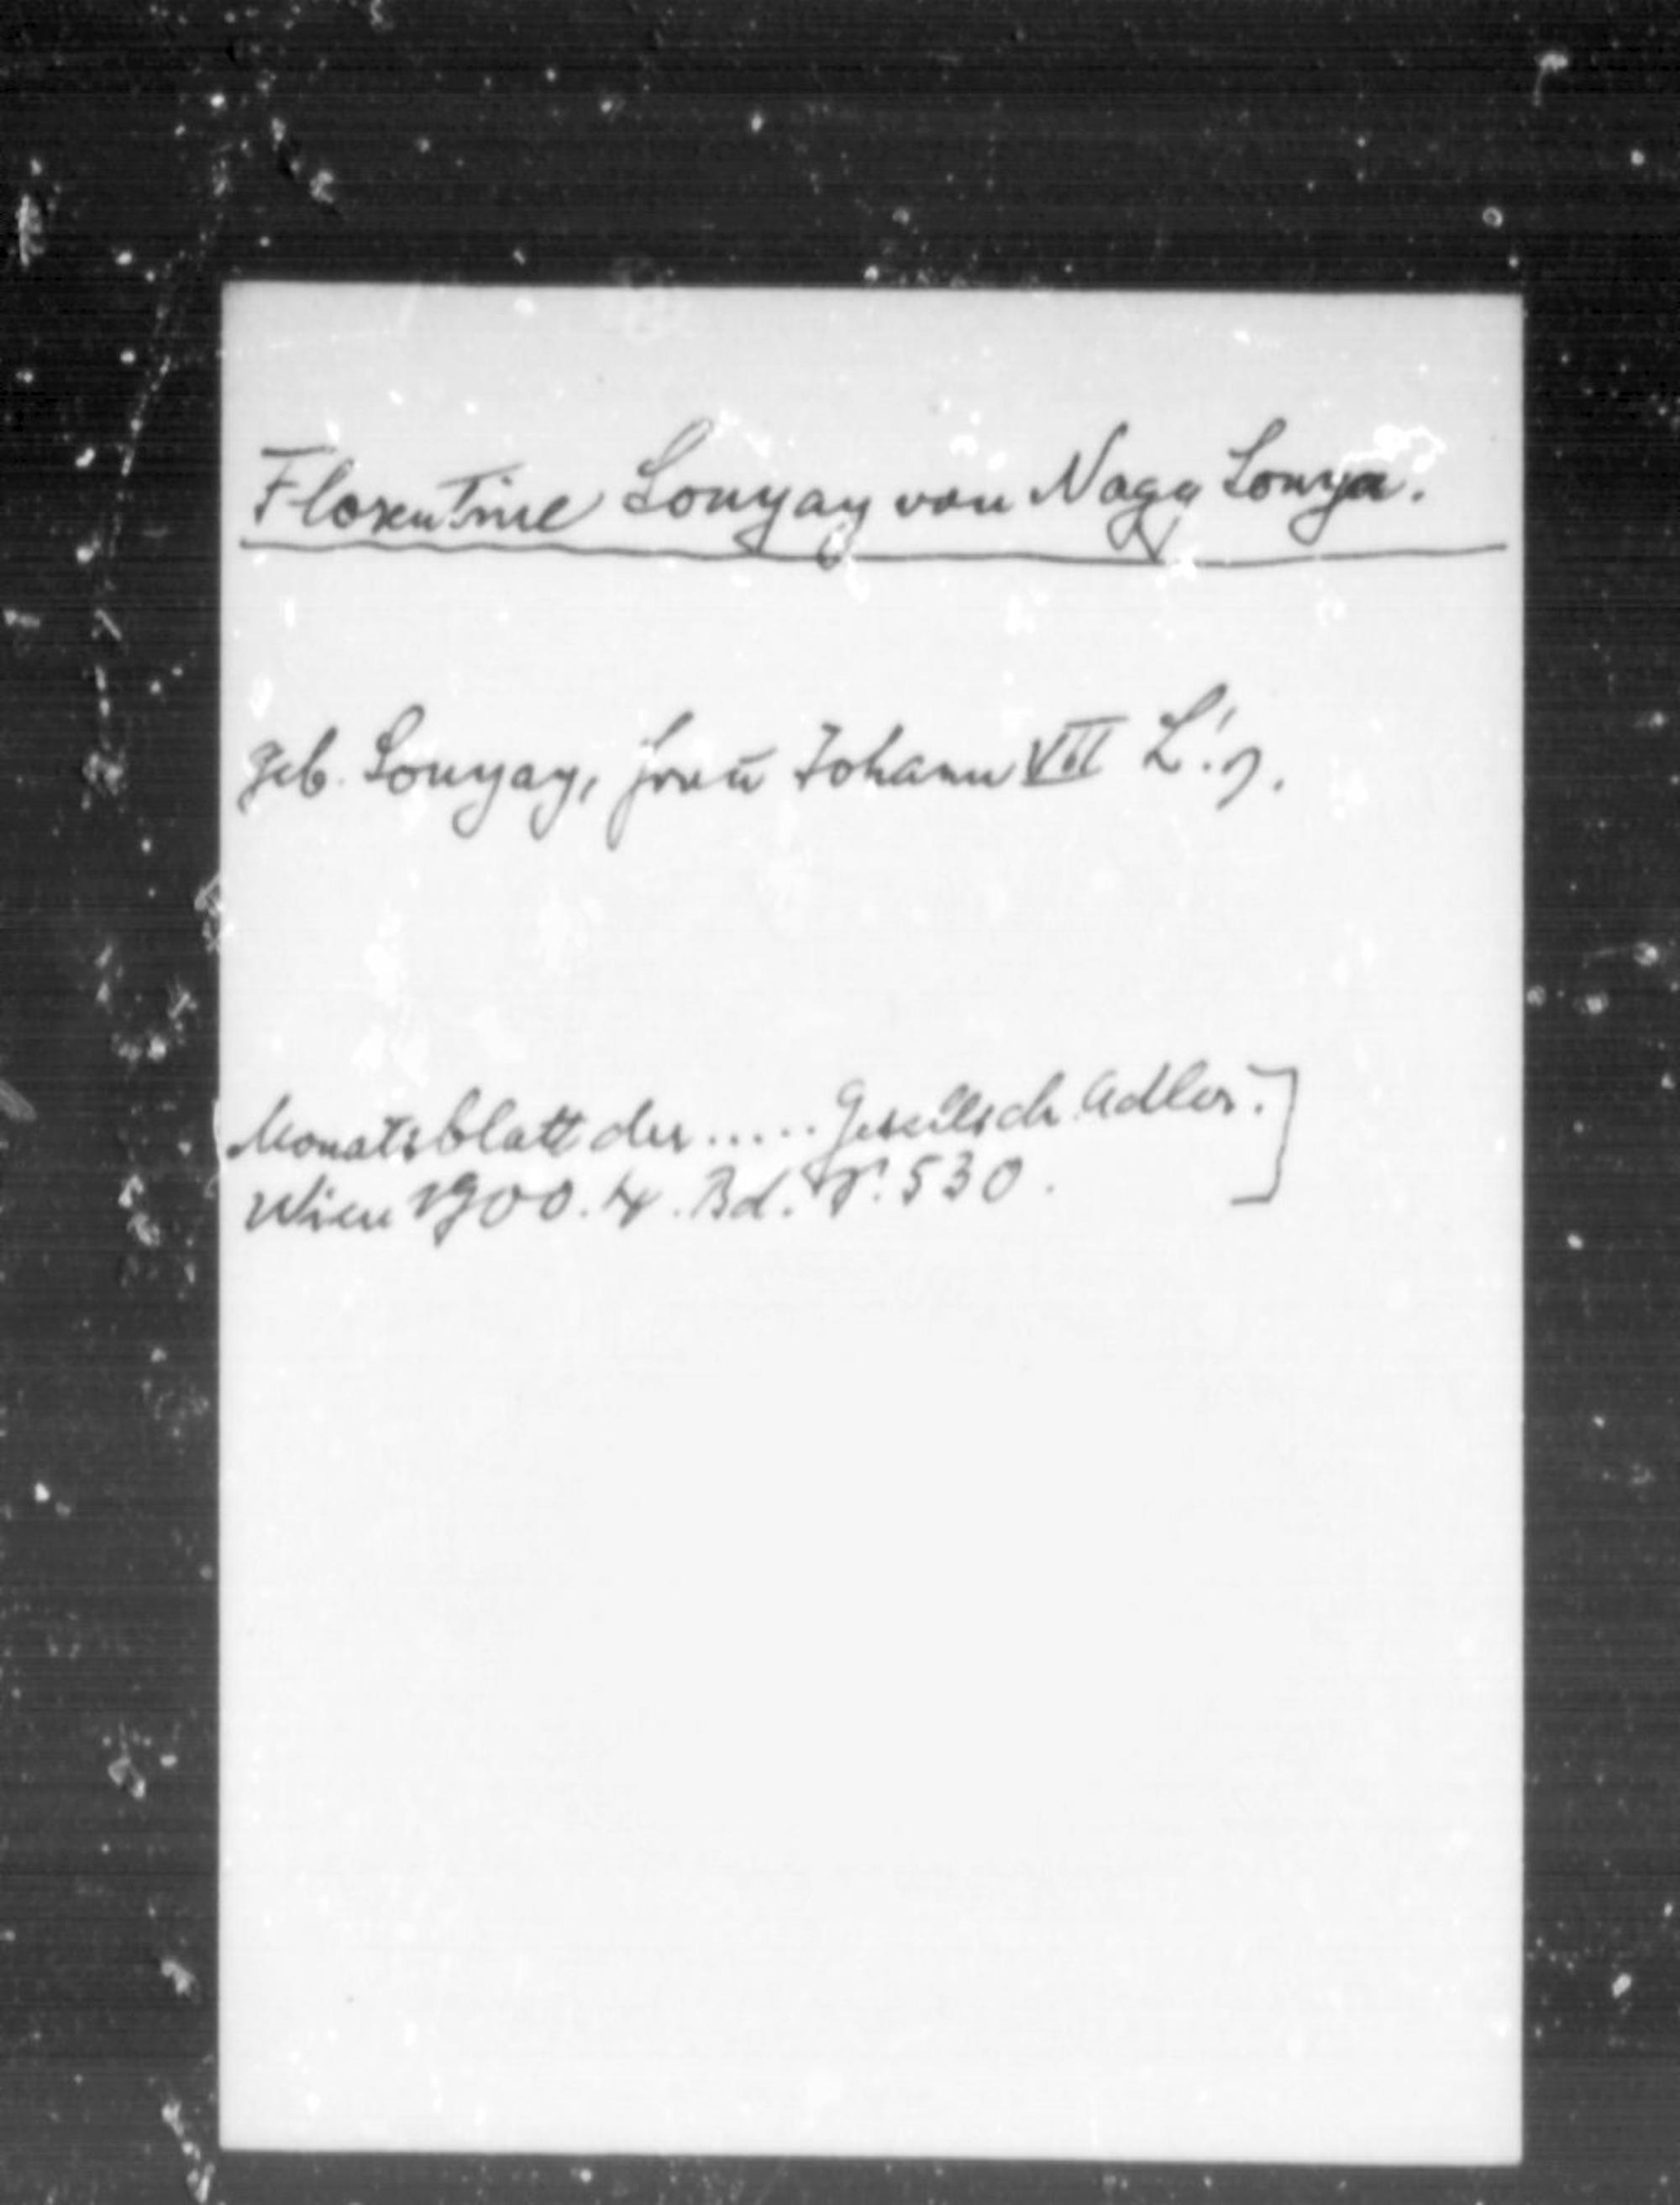 Florentine Lonyay von Nagy Lonya.
geb. Lonyay, Frau Johann VII L!s.
Monatsblatt der ..... Gesellsch. Adler.]
Wien 1900. 4. Bd. S. 530.